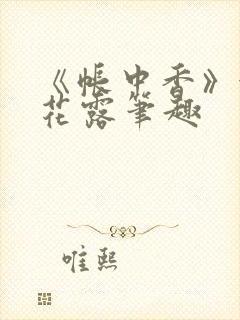 《帐中香》
花露笔趣
唯熙